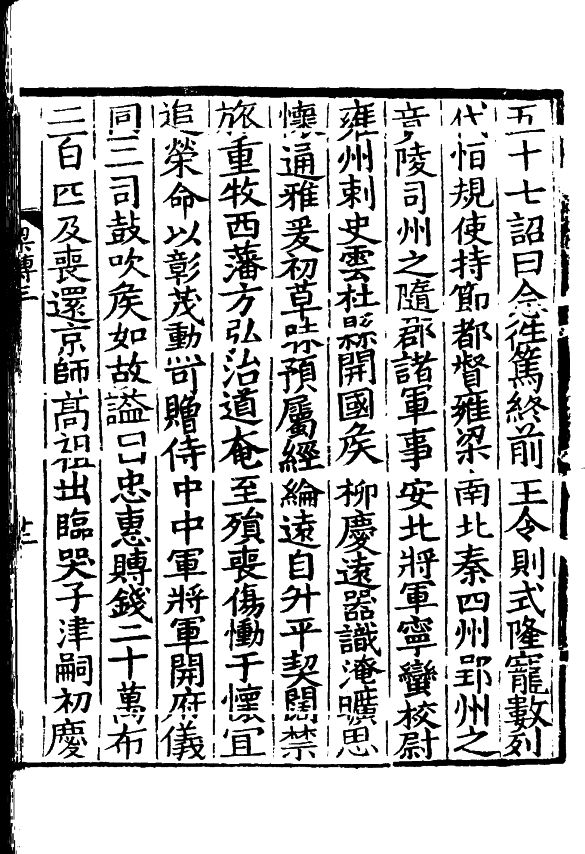 五十七詔曰念徃篤終前王令則式隆寵數列
代恒規使持節都督雍梁南北秦四州郢州之
竟陵司州之隨郡諸軍事安北將軍寧蠻校尉
雍州刺史雲杜縣開國矦柳慶遠器識淹曠思
懷通雅爰初草昧預屬經綸遠自升平契闊禁
旅重牧西藩方弘治道奄至殞喪傷慟于懷宜
追榮命以彰茂勳可贈侍中中軍將軍開府儀
同三司鼓吹矦如故謚曰忠惠賻錢二十萬布
二百匹及喪還京師高祖出臨哭子津嗣初慶
梁傳三
廿二